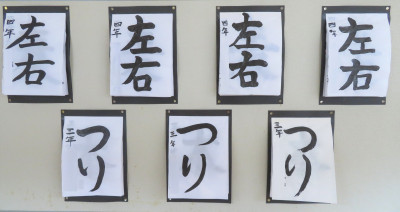 四年 左右
四年 左右
四年 左右
四年 左右
三年 つり
三年 つり
三年 つり